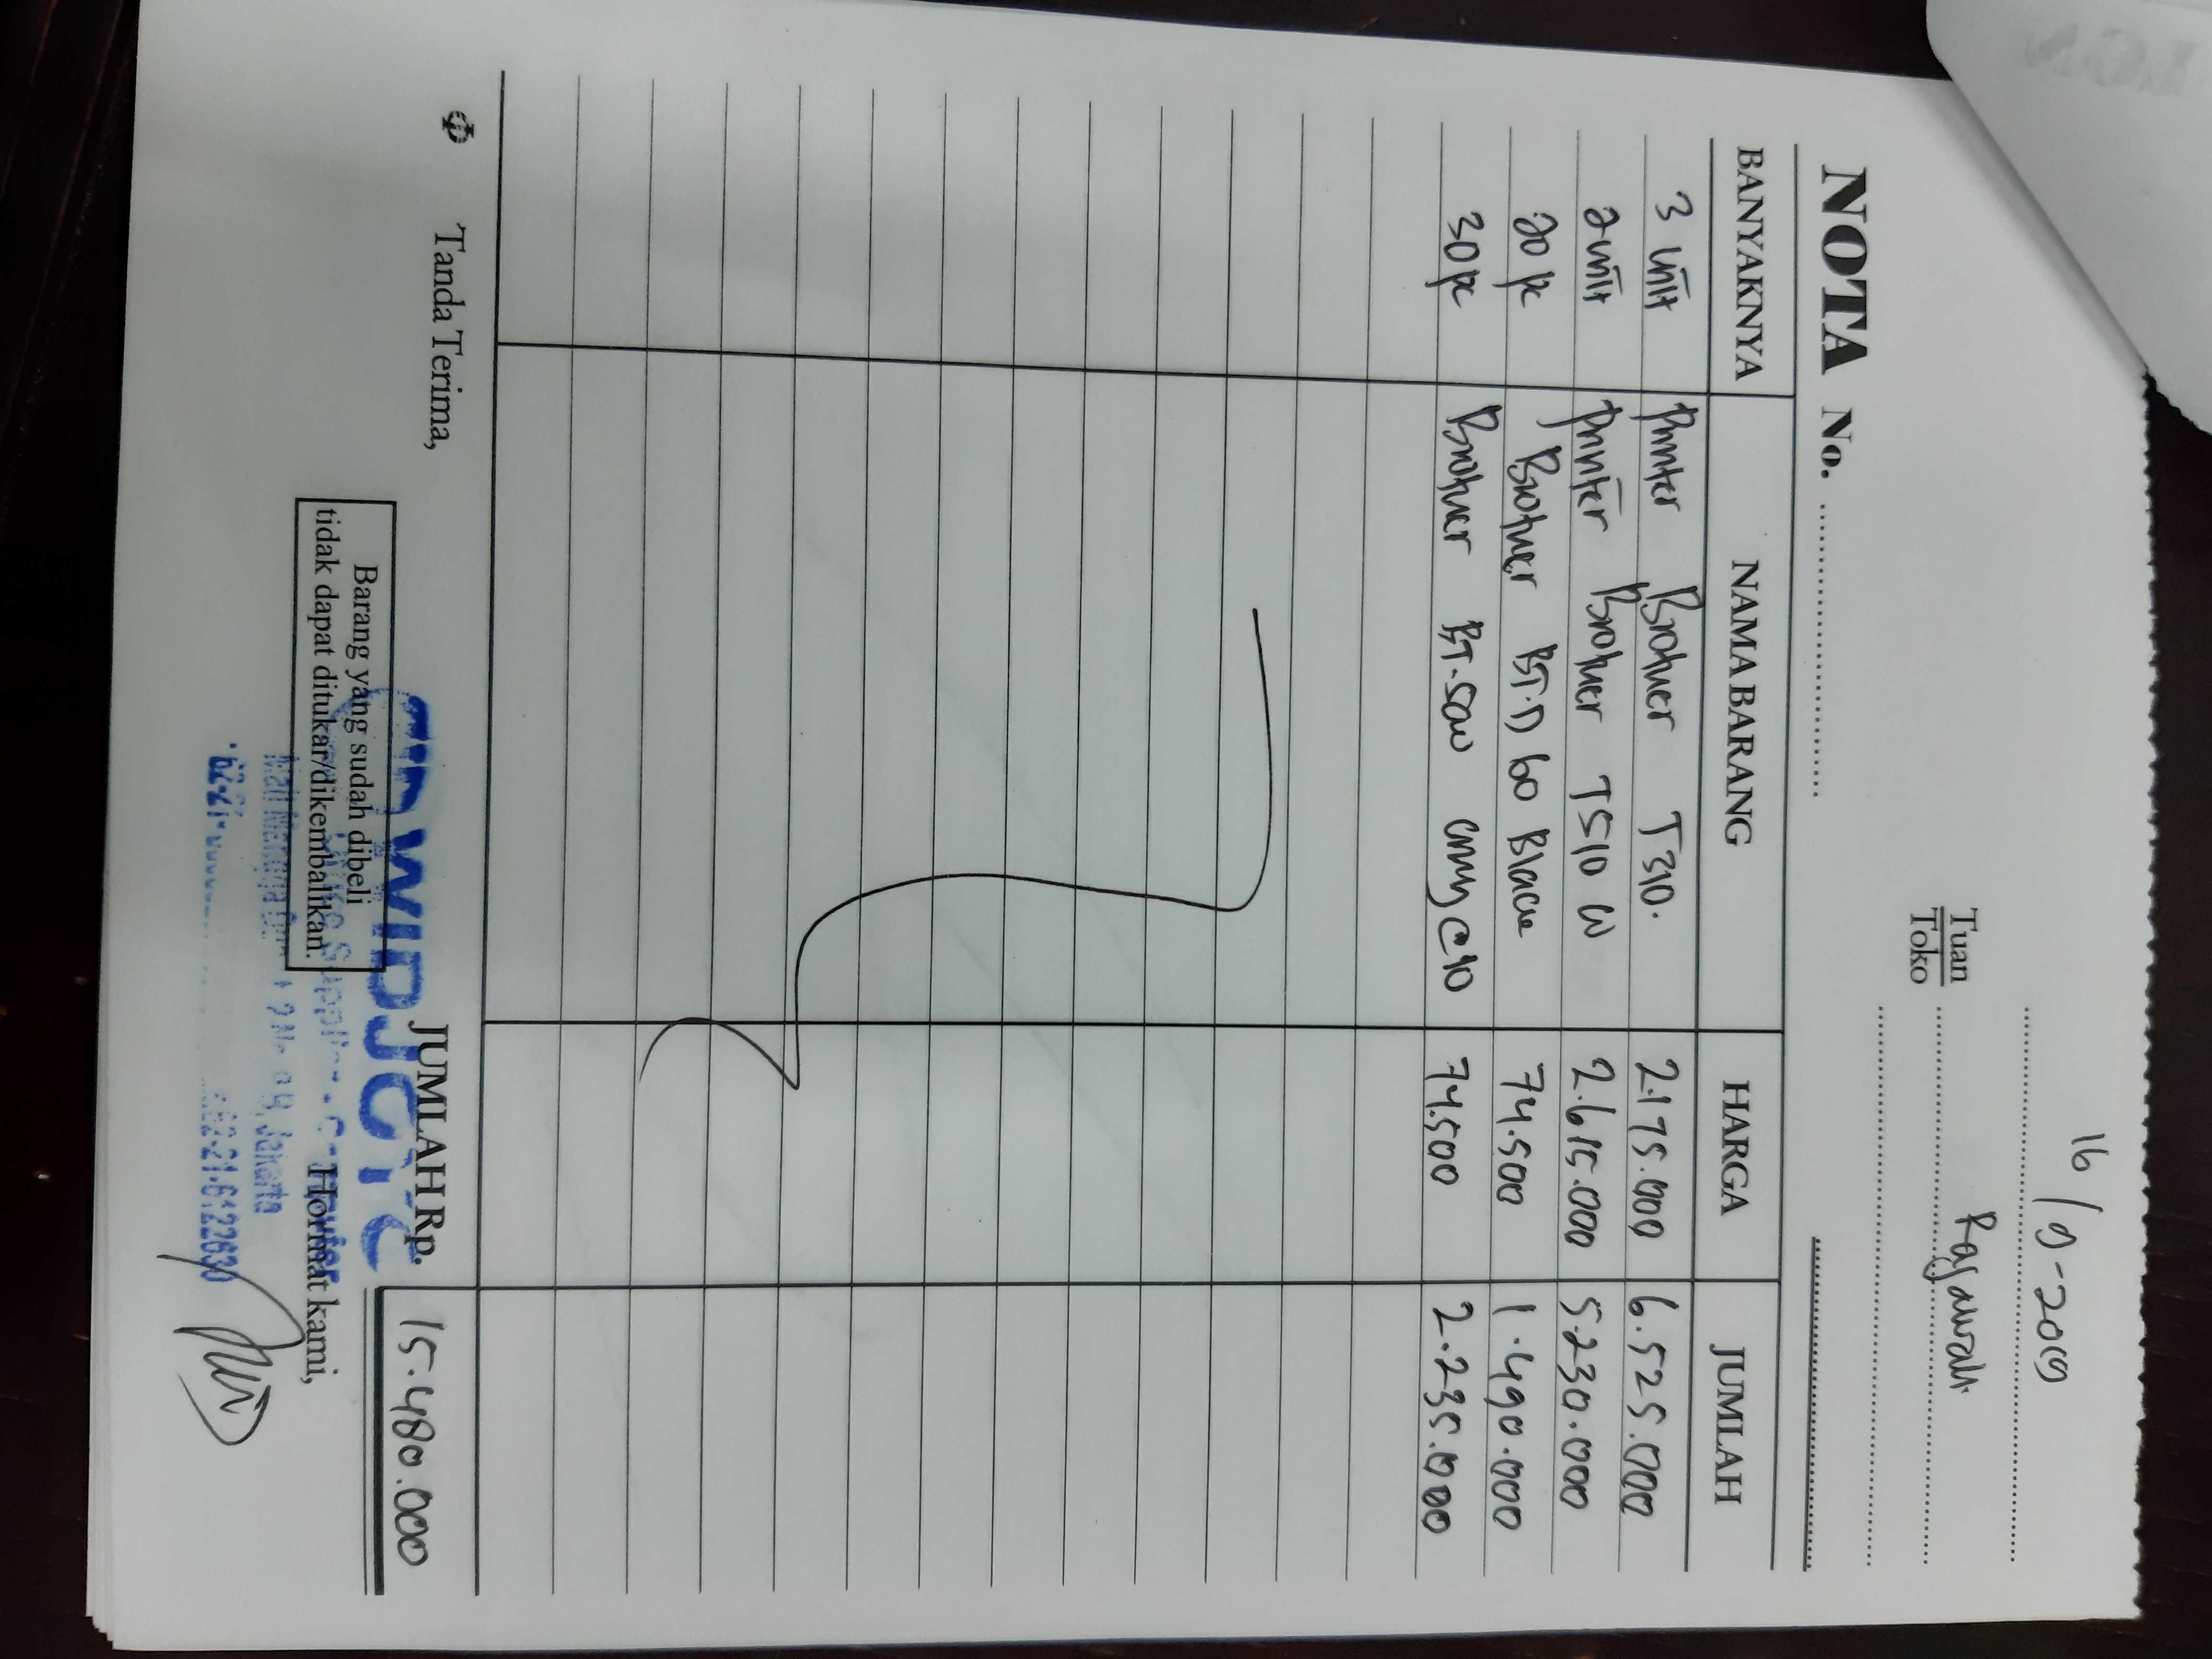 16/10-2019
Tuan
Toko
Ragawah
NOTA No.
BANYAKNYA NAMA BARANG HARGA JUMLAH
3 unit Printer Brother T310. 2.175.000 6.525.000
2 unit Printer Brother T510 W 2.615.000 5.230.000
20 pc Brother BT.D 60 Black 74.500 1.490.000
30 pc Brother BT-500 cmy @10 74.500 2.235.000
JUMLAH Rp. 15.480.000
Tanda Terima,
Barang yang sudah dibeli
tidak dapat ditukar/dikembalikan.
Hormat kami,
Jakarta